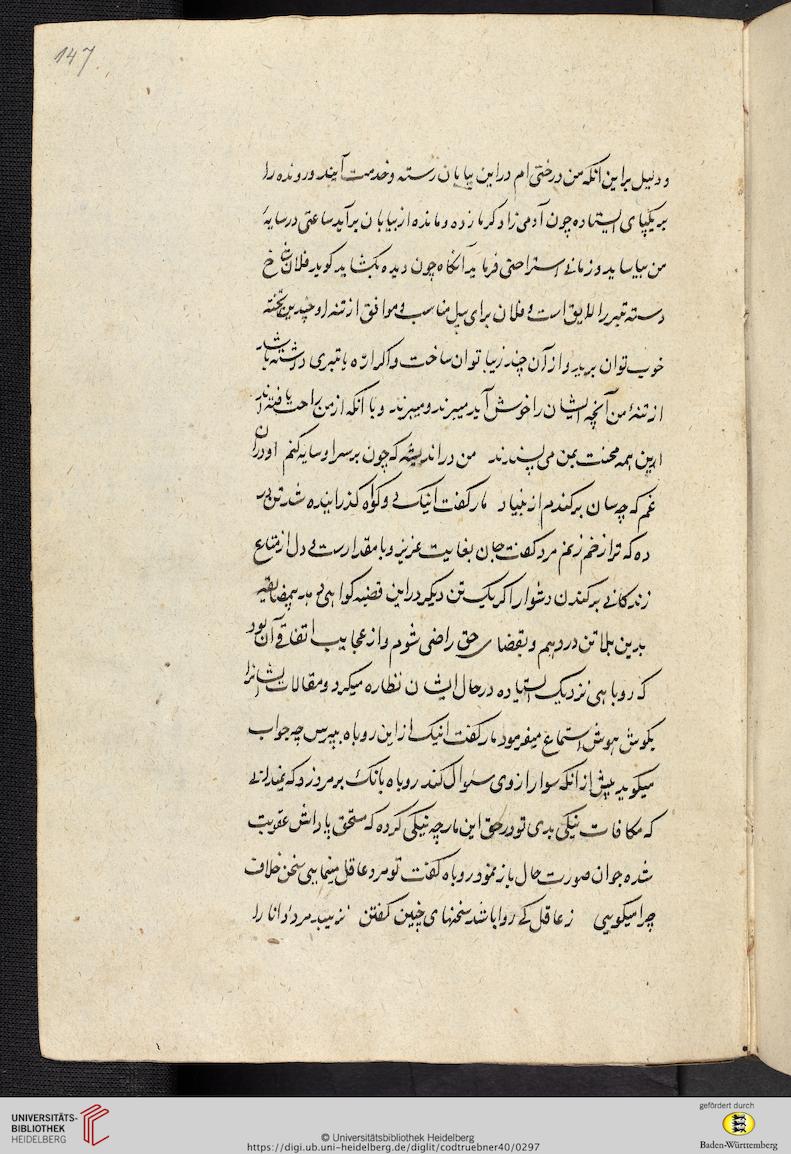 147
و دلیل براین آنکه من درختی ام دراین بیابان رسته وخدمت آینده ورونده را
بریکپای ایستاده چون آدمی زاد کرمازده ومانده از بیابان برآید ساعتی درسایهٔ
من بیاساید وزمانی استراحتی فرماید آنکاه چون دیده بکشاید کوید فلان شاخ
دسته تبر را لایق است وفلان برای بیل مناسب وموافق از تنه او چندین تخته
خوب توان برید واز آن چند زیبا توان ساخت واکر ارّه یا تبری داشته باشد
از تنهٔ من آنچه ایشان را خوش آید میبرند ومیبرند وبا آنکه ازمن راحت یافته اند
این همه محنت بمن می پسندند من در اندیشه که چون برسر او سایه کنم او در آن
غم که چه سان برکندم از بنیاد مار کفت اینک دو کواه کذرانیده شد تن در
ده که ترا زخم زنم مرد کفت جان بغایت عزیز وبا مقدارست دل از متاع
زندکانی برکندن دشوار اکر یک تن دیکر دراین قضیه کواهی دهد بیمضایقه
بدین بلا تن دردهم وبقضای حق راضی شوم واز عجایب اتفاق آن بود
که روباهی نزدیک ایستاده درحال ایشان نظاره میکرد ومقالات ایشانرا
بکوش هوش استماع میفرمود مار کفت اینک از این روباه بپرس چه جواب
میکوید پیش از آنکه سوار از وی سئوال کند روباه بانک برمرد زد که نمیدانی
که مکافات نیکی بدی تو درحق این مار چه نیکی کرده که مستحق پاداش عقوبت
شده جوان صورت حال بازنمود روباه کفت تو مرد عاقل مینمایی سخن خلاف
چرا میکویی ز عاقل کی روا باشد سخنهای چنین کفتن نزیبد مرد دانا را
UNIVERSITÄTS-
BIBLIOTHEK
HEIDELBERG
© Universitätsbibliothek Heidelberg
https://digi.ub.uni-heidelberg.de/diglit/codtruebner40/0297
gefördert durch
Baden-Württemberg